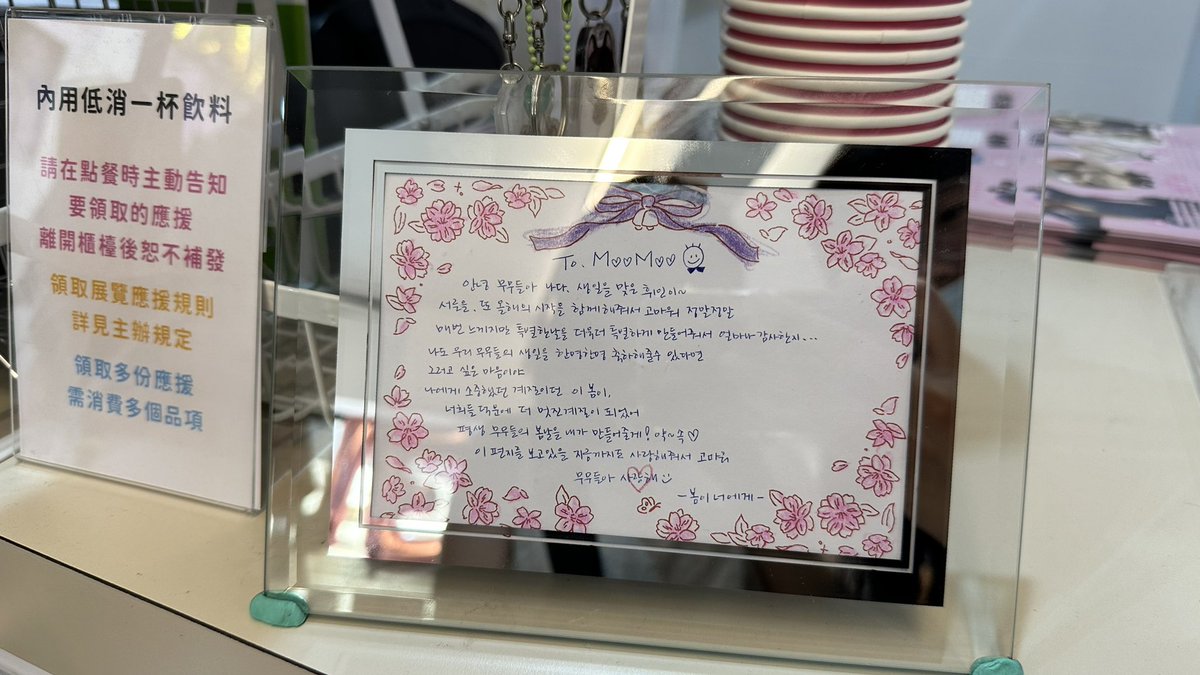 內用低消一杯飲料
請在點餐時主動告知
要領取的應援
離開櫃檯後恕不補發
領取展覽應援規則
詳見主辦規定
領取多份應援
需消費多個品項
To. M♡♡M♡♡
안녕 무무들아 나다. 생일을 맞은 휘인이~
서른을, 또 올해의 시작을 함께해줘서 고마워 정말정말
매번 느끼지만 특별한날을 더욱더 특별하게 만들어줘서 얼마나 감사한지...
나도 우리 무무들의 생일을 한명한명 축하해줄수 있다면
그러고 싶은 마음이야
나에게 소중했던 계절이던 이 봄이,
너희들 덕분에 더 멋진계절이 되었어
평생 무무들의 봄날을 내가 만들어줄게! 약~속♡
이 편지를 보고있을 지금까지도 사랑해줘서 고마워
무무들아 사랑해
-봄이 너에게-